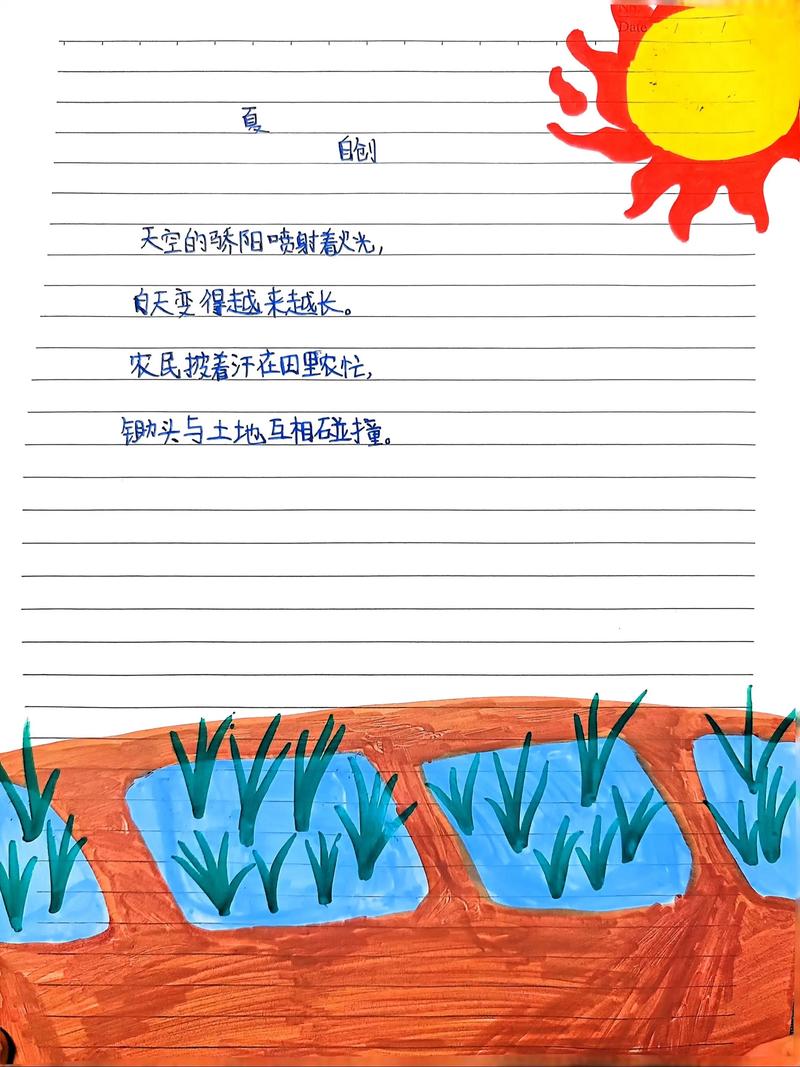 No.
Date / /
夏
自创
天空的骄阳喷射着火光，
白天变得越来越长。
农民披着汗在田里农忙，
锄头与土地互相碰撞。